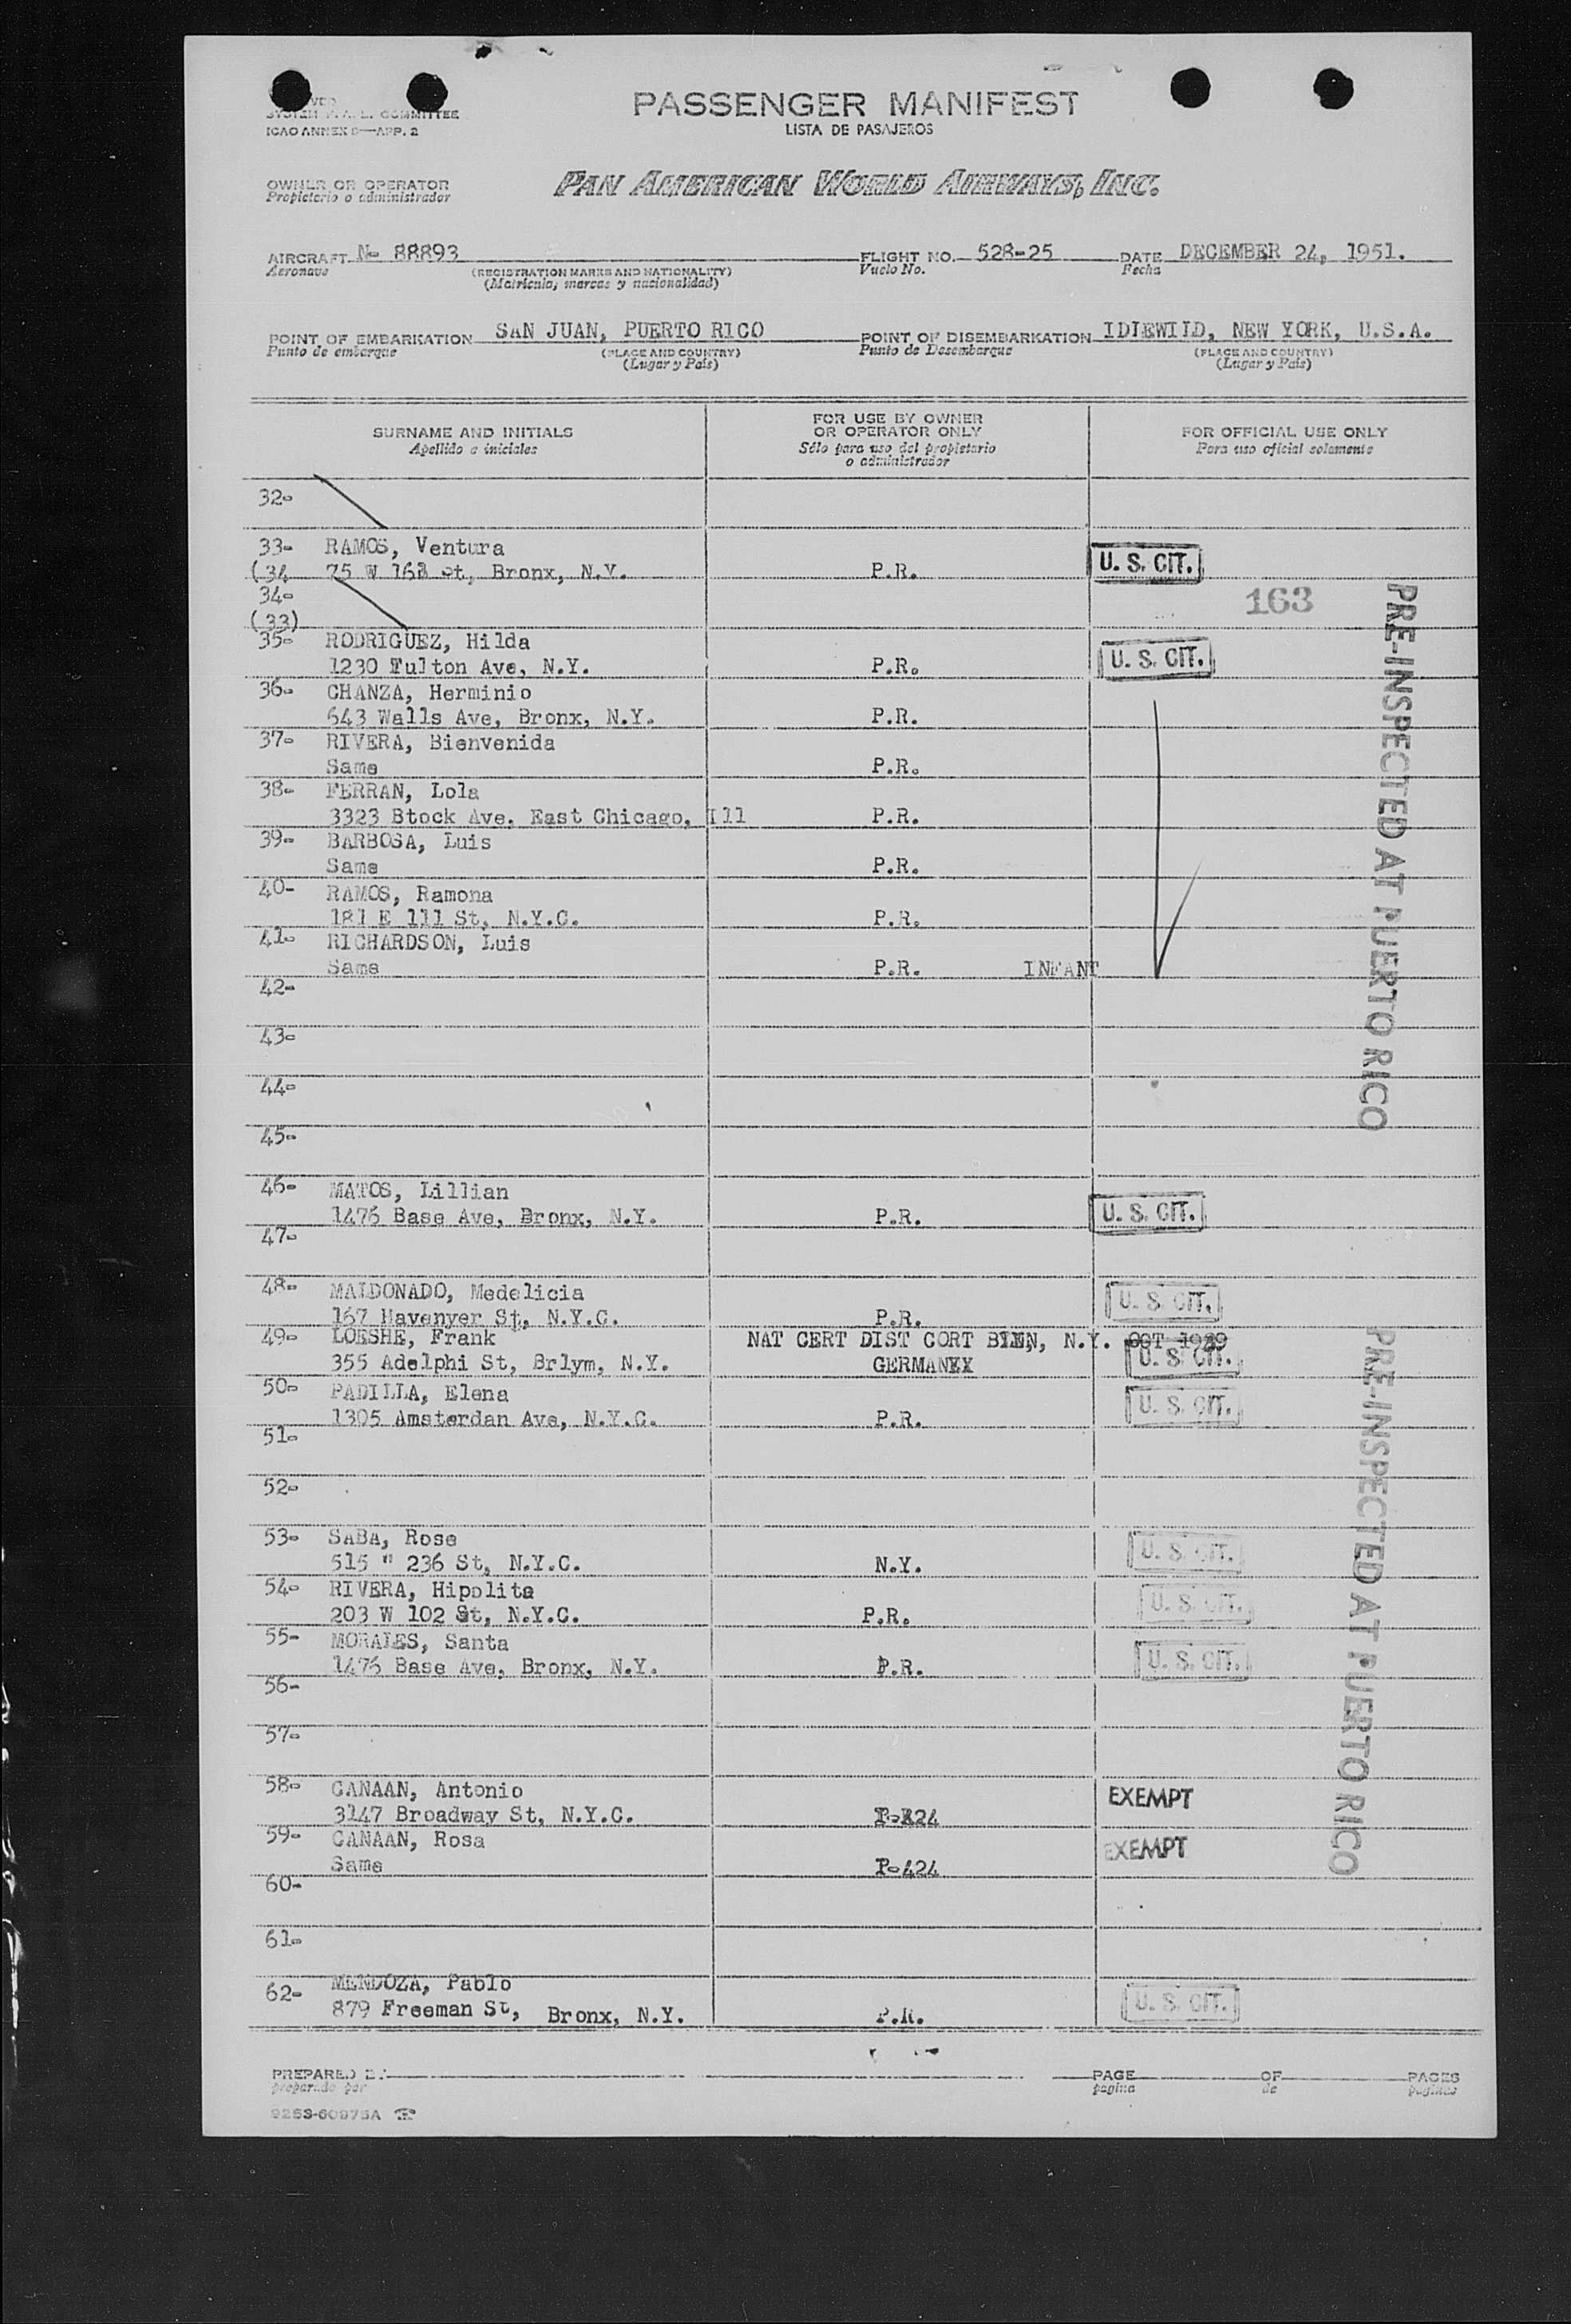 SYSTEM F.A.L. COMMITTEE
ICAO ANNEX 9—APP. 2
PASSENGER MANIFEST
LISTA DE PASAJEROS
OWNER OR OPERATOR
Propietario o administrador
PAN AMERICAN WORLD AIRWAYS, INC.
AIRCRAFT N- 88893 FLIGHT NO. 528-25 DATE DECEMBER 24, 1951.
Aeronave (REGISTRATION MARKS AND NATIONALITY) Vuelo No. Fecha
(Matricula, marcas y nacionalidad)
POINT OF EMBARKATION SAN JUAN, PUERTO RICO POINT OF DISEMBARKATION IDIEWIID, NEW YORK, U.S.A.
Punto de embarque (PLACE AND COUNTRY) Punto de Desembarque (PLACE AND COUNTRY)
(Lugar y País) (Lugar y País)
SURNAME AND INITIALS
Apellido e iniciales
FOR USE BY OWNER
OR OPERATOR ONLY
Sólo para uso del propietario
o administrador
FOR OFFICIAL USE ONLY
Para uso oficial solamente
32-
33- RAMOS, Ventura
(34 75 W St, Bronx, N.Y. P.R. U. S. CIT.
34- 163
(33)
35- RODRIGUEZ, Hilda
1230 Fulton Ave, N.Y. P.R. U. S. CIT.
36- CHANZA, Herminio
643 Walls Ave, Bronx, N.Y. P.R.
37- RIVERA, Bienvenida
Same P.R.
38- FERRAN, Lola
3323 Btock Ave. East Chicago, Ill P.R.
39- BARBOSA, Luis
Same P.R.
40- RAMOS, Ramona
181 E 111 St, N.Y.C. P.R.
41- RICHARDSON, Luis
Same P.R. INFANT
42-
43-
44-
45-
46- MATOS, Lillian
1476 Base Ave, Bronx, N.Y. P.R. U. S. CIT.
47-
48- MALDONADO, Medelicia
167 Havenyer St, N.Y.C. P.R. U. S. CIT.
49- LOESHE, Frank NAT CERT DIST CORT N.Y. OCT
355 Adelphi St, Brlym, N.Y. GERMANY U. S. CIT.
50- PADILLA, Elena
1305 Amsterdan Ave, N.Y.C. P.R. U. S. CIT.
51-
52-
53- SABA, Rose
515 " 236 St, N.Y.C. N.Y. U. S. CIT.
54- RIVERA, Hipolita
203 W 102 St, N.Y.C. P.R. U. S. CIT.
55- MORALES, Santa
1476 Base Ave, Bronx, N.Y. P.R. U. S. CIT.
56-
57-
58- CANAAN, Antonio
3147 Broadway St, N.Y.C. EXEMPT
59- CANAAN, Rosa
Same P-424 EXEMPT
60-
61-
62- MENDOZA, Pablo
879 Freeman St, Bronx, N.Y. P.R. U. S. CIT.
PRE-INSPECTED AT PUERTO RICO
PRE-INSPECTED AT PUERTO RICO
PREPARED BY PAGE OF PAGES
preparado por pagina de paginas
9253-60975A